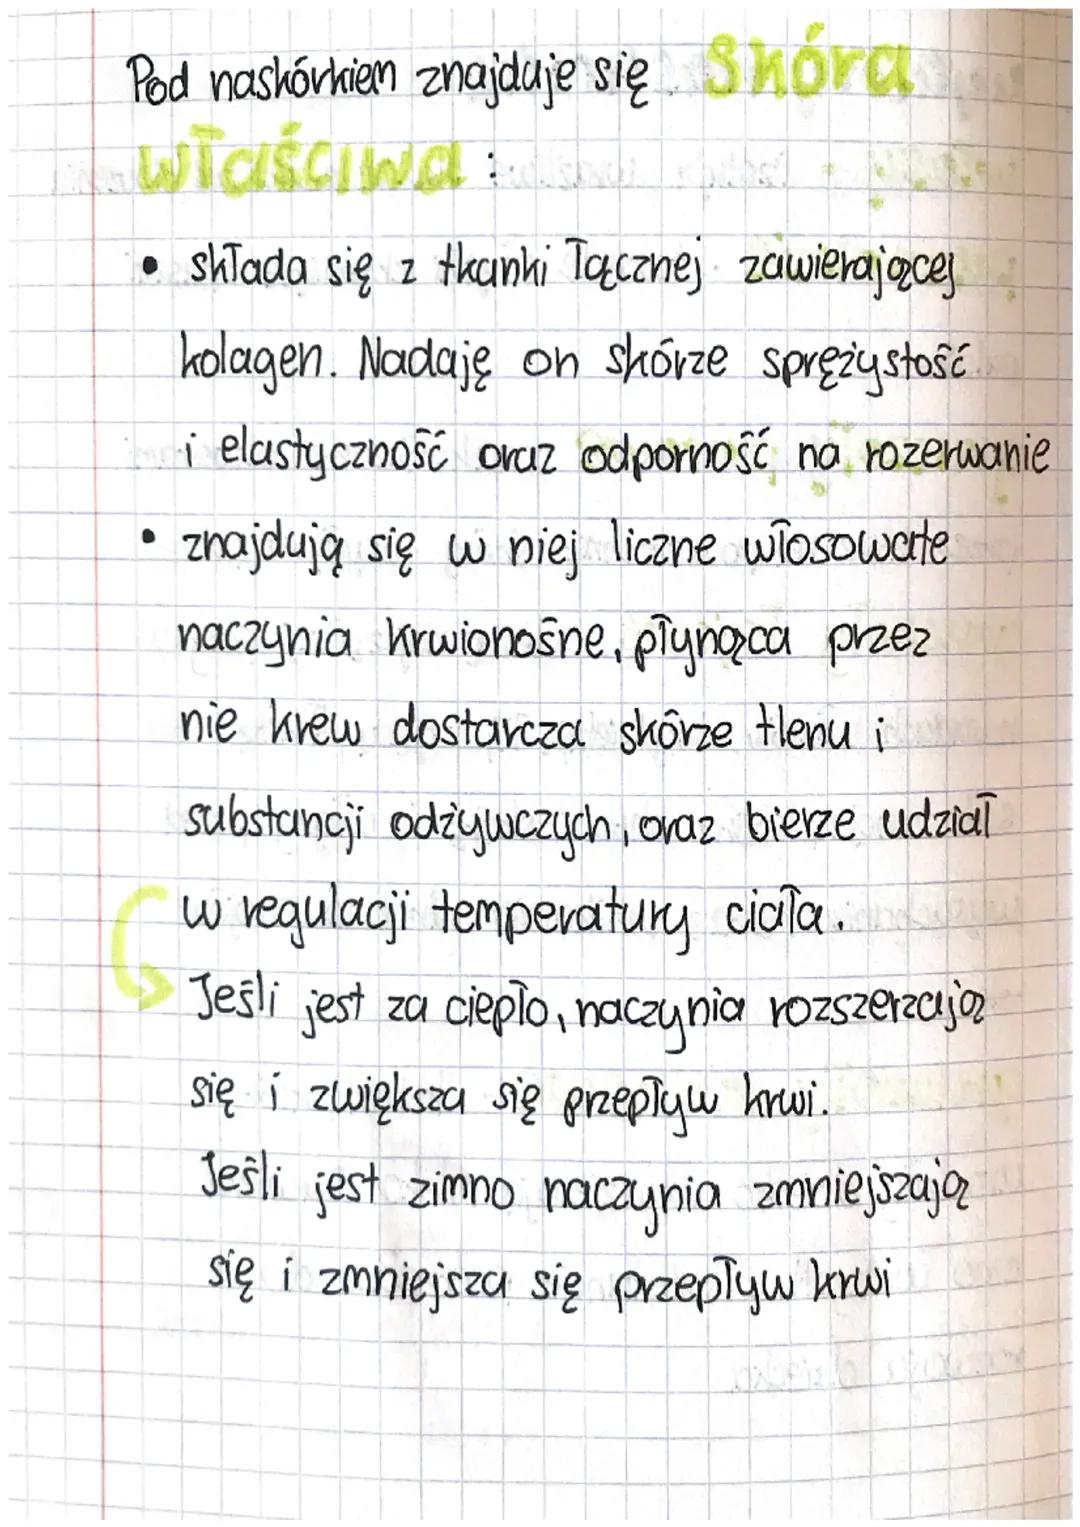 Pod naskórkiem znajduje się Skóra
właściwa :
• składa się z tkanki łącznej zawierającej
kolagen. Nadaję on skórze sprężystość
i elastyczność oraz odporność na rozerwanie
• znajdują się w niej liczne włosowate
naczynia krwionośne, płynąca przez
nie krew dostarcza skórze tlenu i
substancji odżywczych, oraz bierze udział
w regulacji temperatury ciała.
Jeśli jest za ciepło, naczynia rozszerzają
się i zwiększa się przepływ krwi.
Jeśli jest zimno naczynia zmniejszają
się i zmniejsza się przepływ krwi